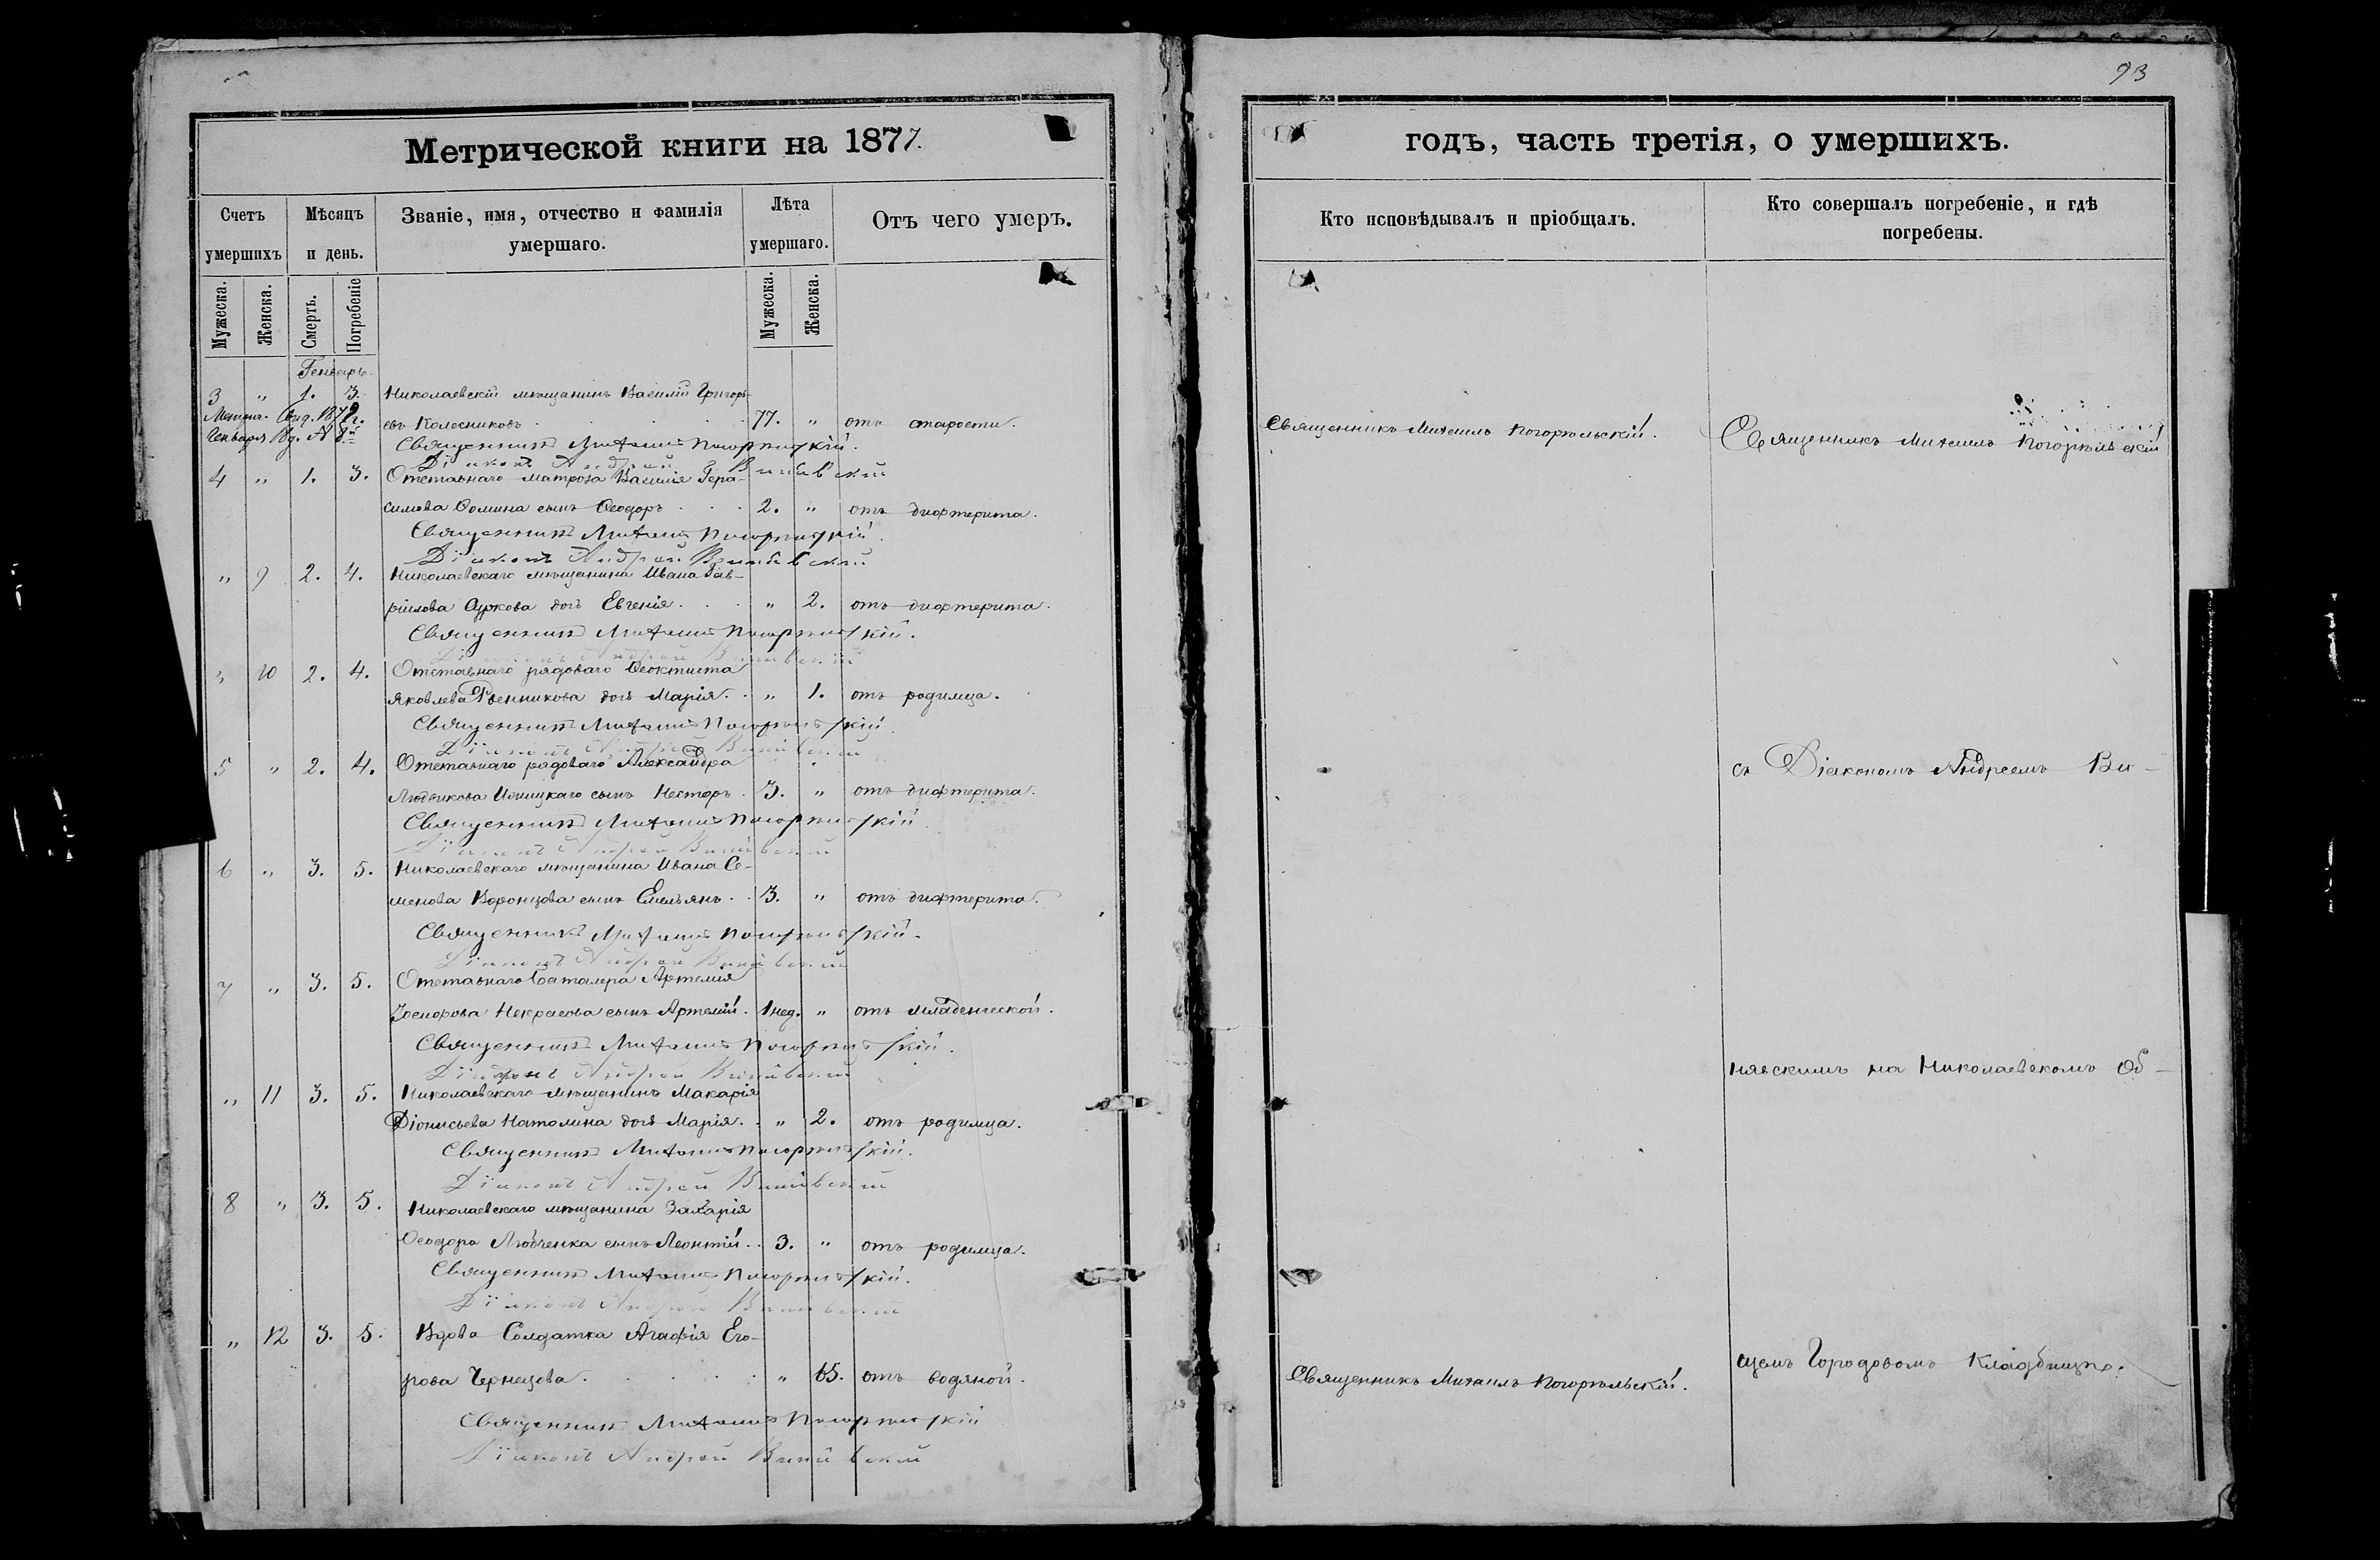 93
Метрической книги на 1877.
годъ, часть третія, о умершихъ.
Счетъ умершихъ
Мѣсяцъ и день.
Званіе, имя, отчество и фамилія умершаго.
Лѣта умершаго.
Отъ чего умеръ.
Кто исповѣдывалъ и пріобщалъ.
Кто совершалъ погребеніе, и гдѣ погребены.
Мужеска. Женска. Смерть. Погребеніе Мужеска. Женска.
Генварь.
3 " 1. 3. Николаевскій мѣщанинъ Василій Григорь-
евъ Колесниковъ 77. " отъ старости.
Священникъ Михаилъ Погорѣльскій.
Діаконъ Андрей Винявскій
4 " 1. 3. Отставнаго матроза Василія Гера-
симова Ѳомина сынъ Ѳеодоръ 2. " отъ дифтерита.
Священникъ Михаилъ Погорѣльскій.
Діаконъ Андрей Винявскій
" 9 2. 4. Николаевскаго мѣщанина Ивана Гав-
ріилова Суркова дочь Евгенія " 2. отъ дифтерита.
Священникъ Михаилъ Погорѣльскій.
Діаконъ Андрей Винявскій
" 10 2. 4. Отставнаго рядоваго Ѳеоктиста
Яковлева дочь Марія " 1. отъ родимца.
Священникъ Михаилъ Погорѣльскій
Діаконъ Андрей Винявскій
5 " 2. 4. Отставнаго рядоваго Александра
сынъ Несторъ 3. " отъ дифтерита.
Священникъ Михаилъ Погорѣльскій
Діаконъ Андрей Винявскій
6 " 3. 5. Николаевскаго мѣщанина Ивана Се-
менова Воронцова сынъ Емельянъ 3. " отъ дифтерита.
Священникъ Михаилъ Погорѣльскій.
Діаконъ Андрей Винявскій
7 " 3. 5. Отставнаго Баталера Артемія
Некрасова сынъ Артемій. 1 нед. " отъ младенческой.
Священникъ Михаилъ Погорѣльскій.
Діаконъ Андрей Винявскій
" 11 3. 5. Николаевскаго мѣщанинъ Макарія
Діонисьева Натолина дочь Марія. " 2. отъ родимца.
Священникъ Михаилъ Погорѣльскій.
Діаконъ Андрей Винявскій
8 " 3. 5. Николаевскаго мѣщанина Захарія
Ѳеодора Любченка сынъ Леонтій 3. " отъ родимца.
Священникъ Михаилъ Погорѣльскій.
Діаконъ Андрей Винявскій
" 12 3. 5. Вдова Солдатка Агафія Его-
рова Чернецова " 65. отъ водяной.
Священникъ Михаилъ Погорѣльскій
Діаконъ Андрей Винявскій
Священникъ Михаилъ Погорѣльскій.
Священникъ Михаилъ Погорѣльскій.
Священникъ Михаилъ Погорѣльскій
съ Діакономъ Андреемъ Ви-
нявскимъ на Николаевскомъ Об-
щемъ Городовомъ Кладбищѣ.